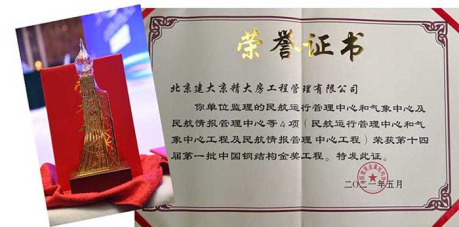 荣誉证书
北京建大京精大房工程管理有限公司
你单位监理的民航运行管理中心和气象中心及
民航情报管理中心等4项（民航运行管理中心和气
象中心工程及民航情报管理中心工程）荣获第十四
届第一批中国钢结构金奖工程。特发此证。
二〇二一年五月